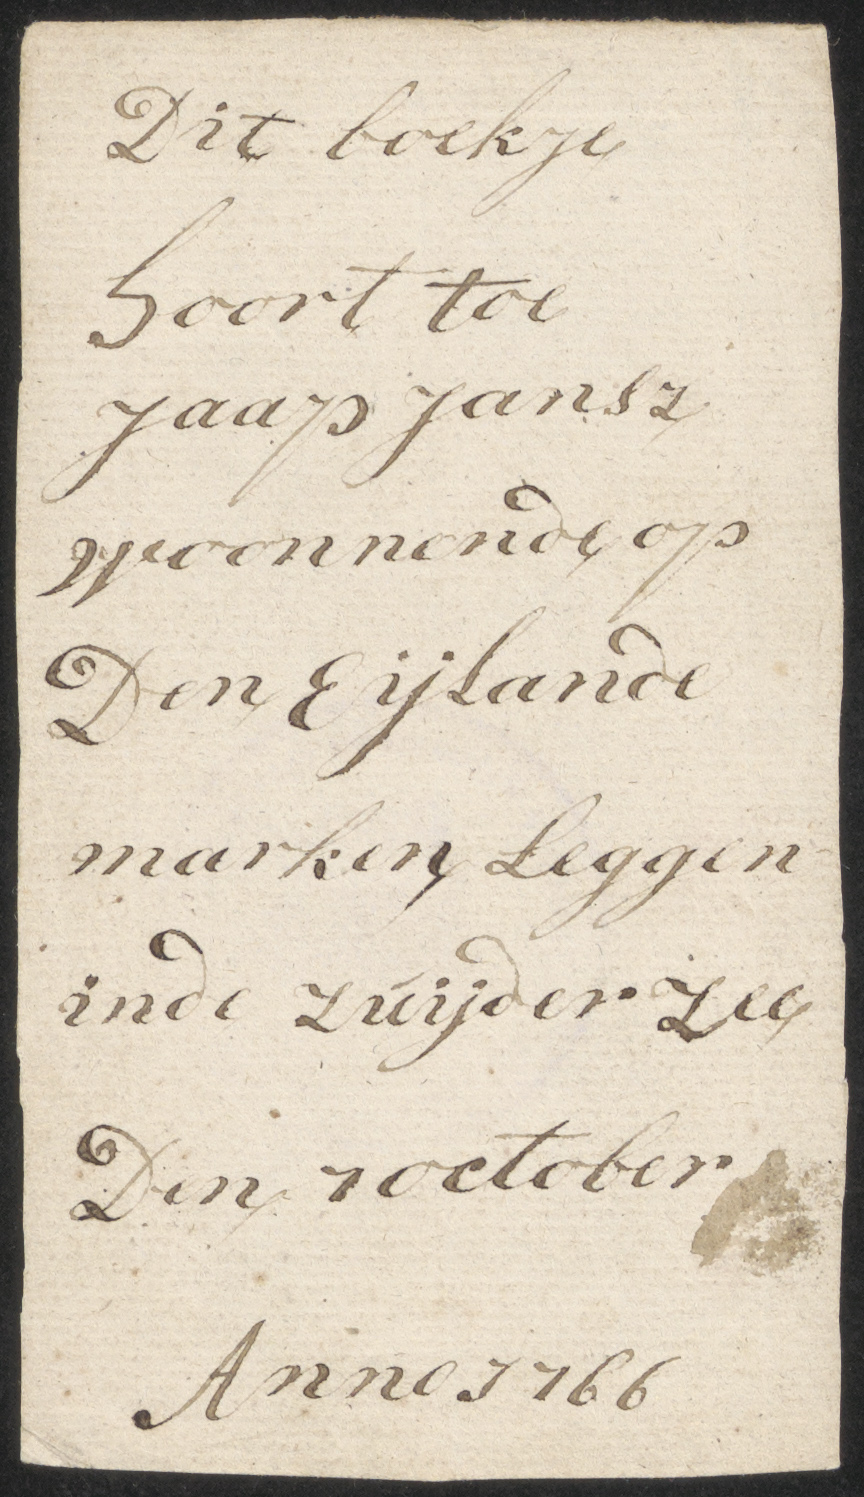 Dit boekje
hoort toe
Jaap Jansz
woonnende op
Den Eijlande
marken Leggen
inde zuijder Zee
Den 7 october
Anno 1766